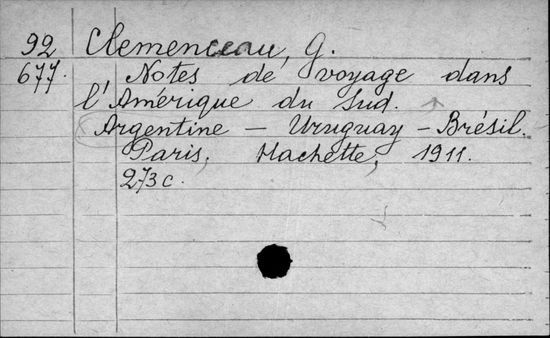 92 Clemenceau, G.
677. Notes de voyage dans
l'Amérique du Sud.
Argentine — Uruguay — Brésil.
Paris, Hachette, 1911.
273 c.